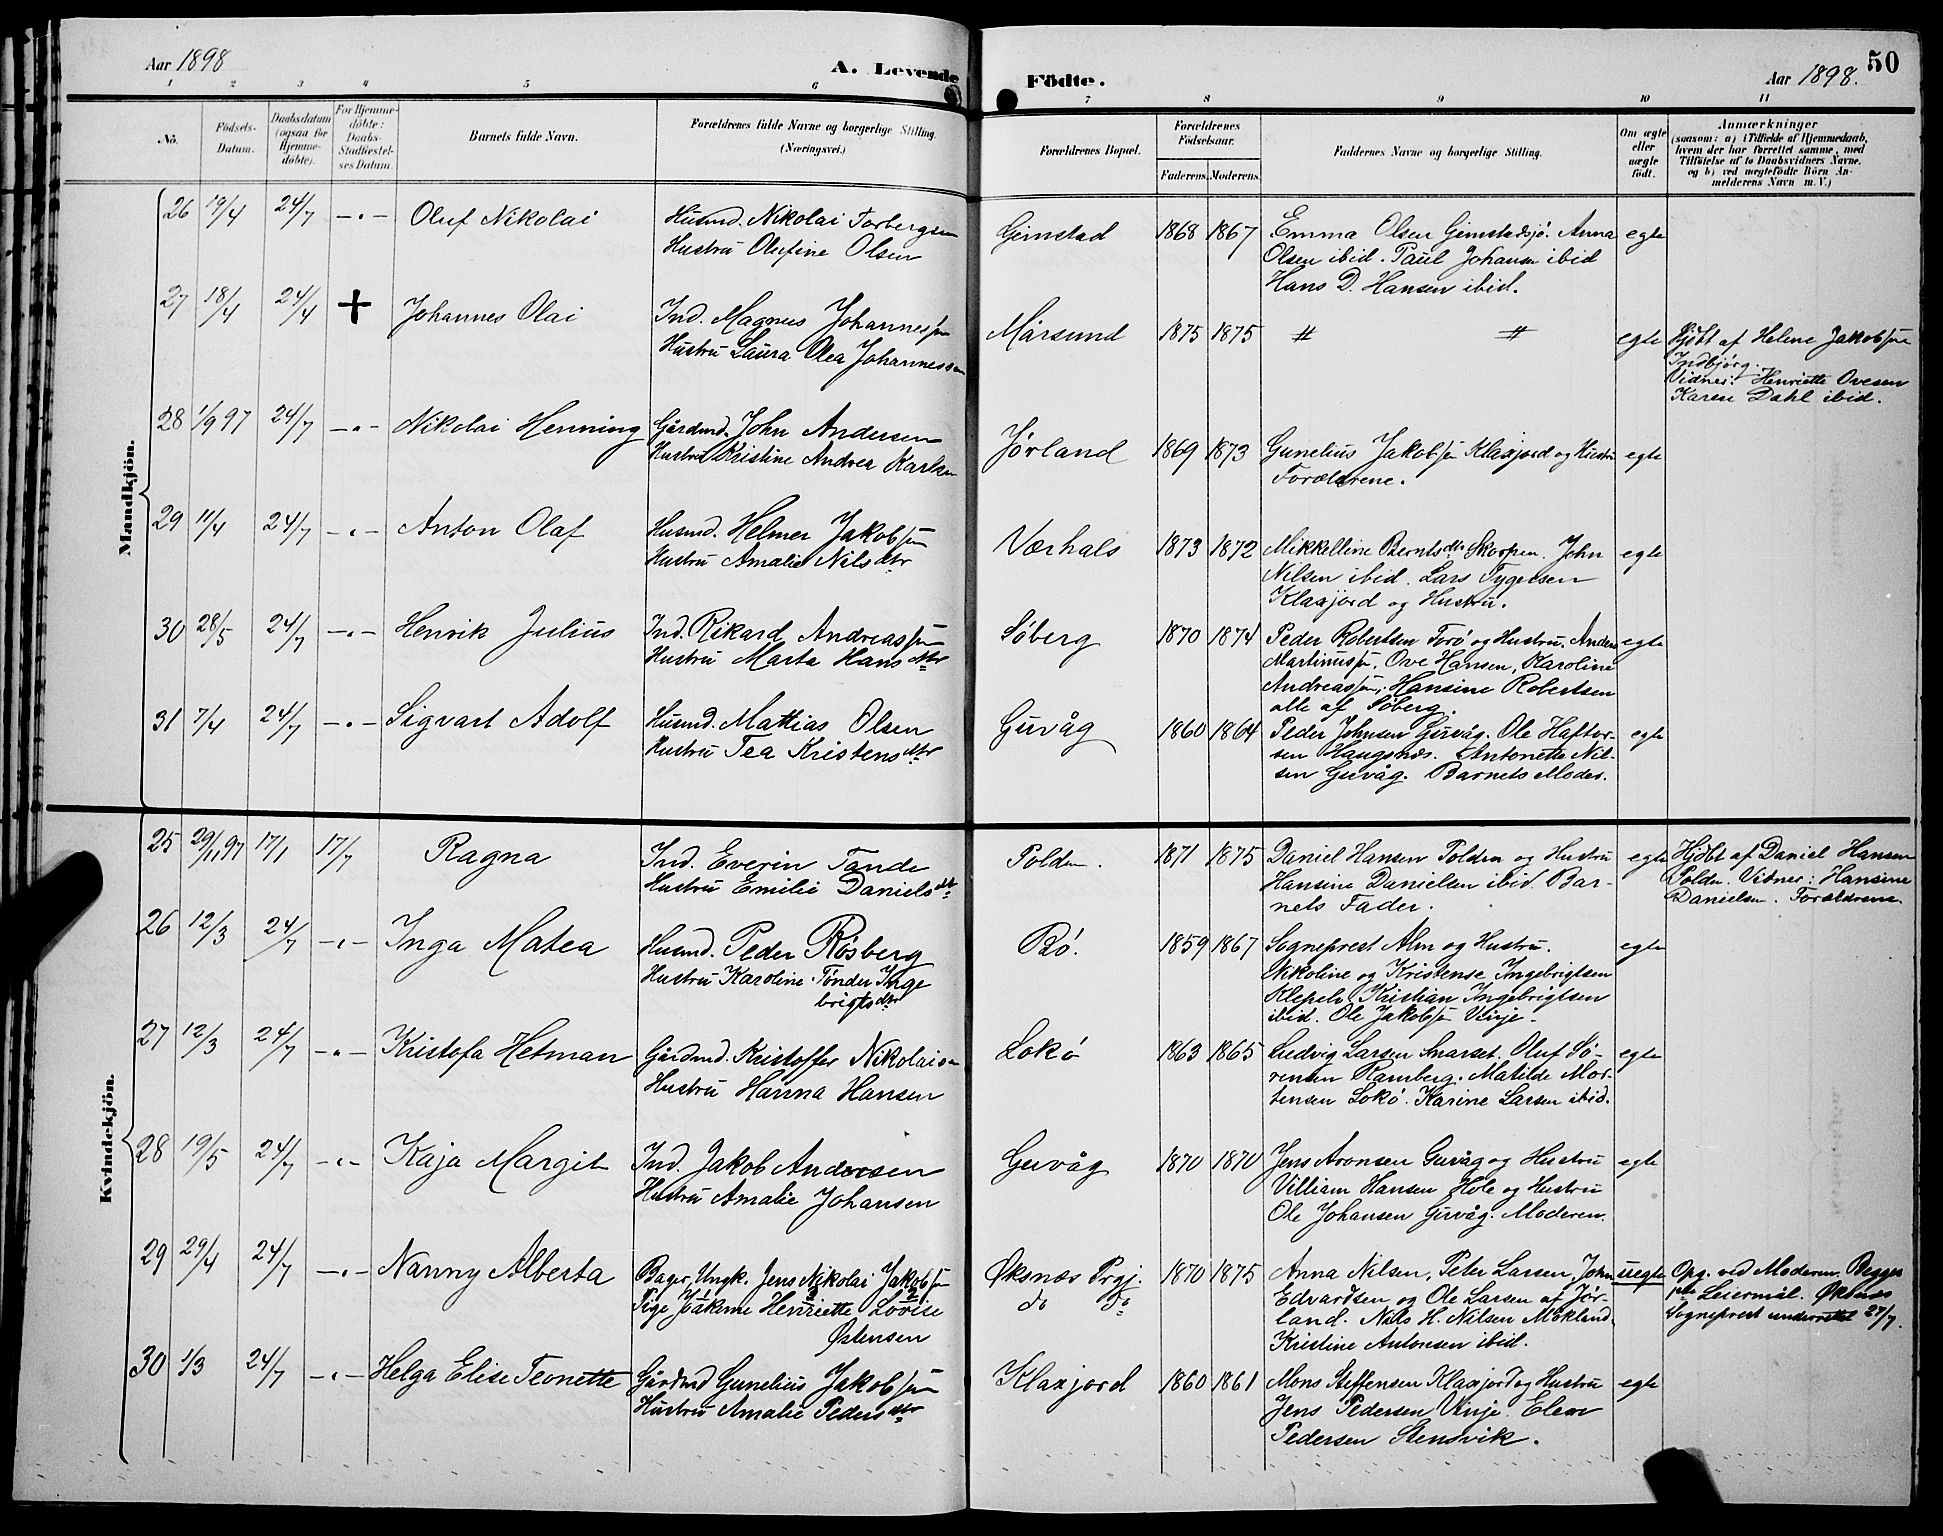 Aar 1898
A. Levende Födte.
Aar 1898.
50
1 2 3 4 5 6 7 8 9 10 11
No.
Födsels-
Datum.
Daabsdatum
(ogsaa for
Hjemme-
döbte).
For Hjemme-
döbte:
Daabs-
Stadfæstel-
ses Datum.
Barnets fulde Navn.
Forældrenes fulde Navne og borgerlige Stilling.
(Næringsvei.)
Forældrenes Bopæl.
Forældrenes
Födselsaar.
Faderens. Moderens.
Faddernes Navne og borgerlige Stilling.
Om ægte
eller
uægte
födt.
Anmærkninger
(saasom: a) i Tilfælde af Hjemmedaab,
hvem der har forrettet samme, med
Tilföielse af to Daabsvidners Navne,
og b) ved uægtefödte Börn An-
melderens Navn m. V.)
Mandkjön.
26 19/4 24/7 -"- Oluf Nikolai
Husmd. Nikolai Torbergsen
Hustru Olufine Olsen
Gimstad 1868 1867
Emma Olsen Gimstadsjø. Anna
Olsen ibid. Paul Johansen ibid
Hans D. Hansen ibid.
egte
27 18/4 24/4 + Johannes Olai
Ind. Magnus Johannessen
Hustru Laura Olea Johannessen
Mårsund 1875 1875 # #
egte
Hjdbt af Helene Jakobsen
Indbjørg.
Vidner: Henriette Ovesen
Karen Dahl ibid.
28 1/9 97 24/7 -"- Nikolai Henning
Gårdmd. John Andersen
Hustru Kristine Andrea Karlsen
Jørland 1869 1873
Gunelius Jakobsen Klaxjord og Hustru
Forældrene.
egte
29 11/4 24/7 -"- Anton Olaf
Husmd. Helmer Jakobsen
Hustru Amalie Nilsdtr
Værhals 1873 1872
Mikkelline Berntsdtr Skorpen. John
Nilsen ibid. Lars Tygesen
Klaxjord og Hustru.
egte
30 28/5 24/7 -"- Henrik Julius
Ind. Rikard Andreassen
Hustru Marta Hansdtr
Søberg 1870 1874
Peder Robertsen Torø og Hustru. Anders
Martinussen, Ove Hansen, Karoline
Andreassen, Hansine Robertsen
alle af Søberg.
egte
31 7/4 24/7 -"- Sigvart Adolf
Husmd. Mattias Olsen
Hustru Tea Kristensdtr
Guvåg 1860 1864
Peder Johnsen Guvåg. Ole Haftor-
sen Haugsnds. Antonette Nil-
sen Guvåg. Barnets Moder.
egte
Kvindekjön.
25 29/11 97 17/1 17/7 Ragna
Ind. Everin Tande
Hustru Emilie Danielsdtr
Polden. 1871 1875
Daniel Hansen Polden og Hustru
Hansine Danielsen ibid. Bar-
nets Fader.
egte
Hjdbt af Daniel Hansen
Polden. Vidner: Hansine
Danielsen. Forældrene
26 12/3 24/7 -"- Inga Matea
Husmd. Peder Røsberg
Hustru Karoline Tønder Inge
brigtsdtr
Bø. 1859 1867
Sogneprest Alm og Hustru.
Nikoline og Kristense Ingebrigtsen
Klepelv. Kristian Ingebrigtsen
ibid. Ole Jakobsen Vinje.
egte
27 12/3 24/7 -"- Kristofa Hetman
Gårdmd. Kristoffer Nikolaisen
Hustru Hanna Hansen
Lokø 1863 1865
Ludvig Larsen Snarset. Oluf Sø-
rensen Ramberg. Matilde Mor-
tensen Lokø. Karine Larsen ibid.
egte
28 19/5 24/7 -"- Kaja Margit
Ind. Jakob Andersen
Hustru Amalie Johansen
Guvåg 1870 1870
Jens Aronsen Guvåg og Hustru
Villiam Hansen Hole og Hustru
Ole Johansen Guvåg. Moderen.
egte
29 29/4 24/7 -"- Nanny Alberta
Bager, Ungk. Jens Nikolai Jakobsen
Pige Joakime Henriette Lovise
Østensen
Øksnæs Prgj.
do do
1870 1875
Anna Nilsen, Peter Larsen, John
Edvardsen og Ole Larsen af Jør-
land. Nils H. Nilsen Møkland.
Kristine Antonsen ibid.
uegte
Opg. ved Moderen. Begges
Leiermål. Øksnes
Sogneprest underrettet 27/7.
30 1/3 24/7 -"- Helga Elise Teonette
Gårdmd Gunelius Jakobsen
Hustru Amalie Pedersdtr
Klaxjord 1860 1861
Mons Steffensen Klaxjord og Hustru
Jens Pedersen Vinje. Elen
Pedersen Stensvik.
egte